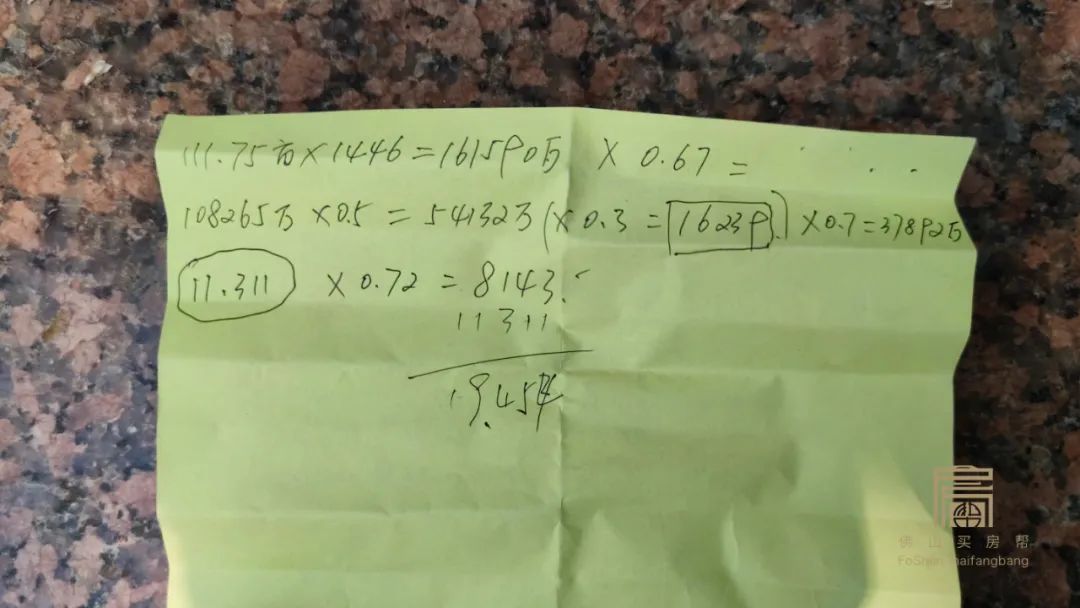 111.75方×1446=161590万 × 0.67 =
108265万 ×0.5 = 54132万(×0.3 = 16239.) ×0.7=37892万
11.311 × 0.72 = 8143.
11311
19.454
佛山买房帮
FoShan maifangbang